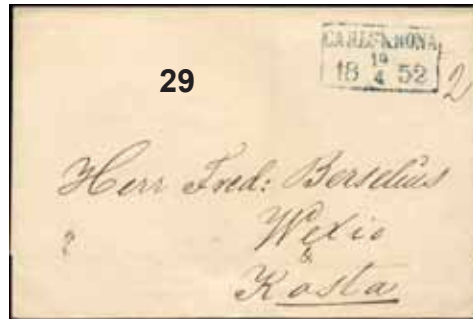 CARLSKRONA
18 19/4 52
29
2
Herr Fred: Berselius
Wexio
&
Kosta